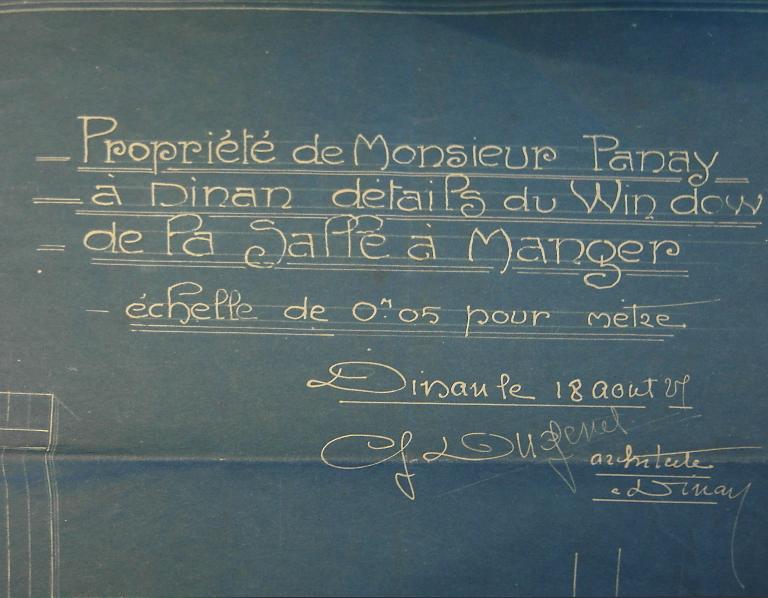 Propriété de Monsieur Panay
à Dinan détails du Window
de la Salle à Manger
échelle de 0.m05 pour mètre
Dinan le 18 aout
architecte
à Dinan